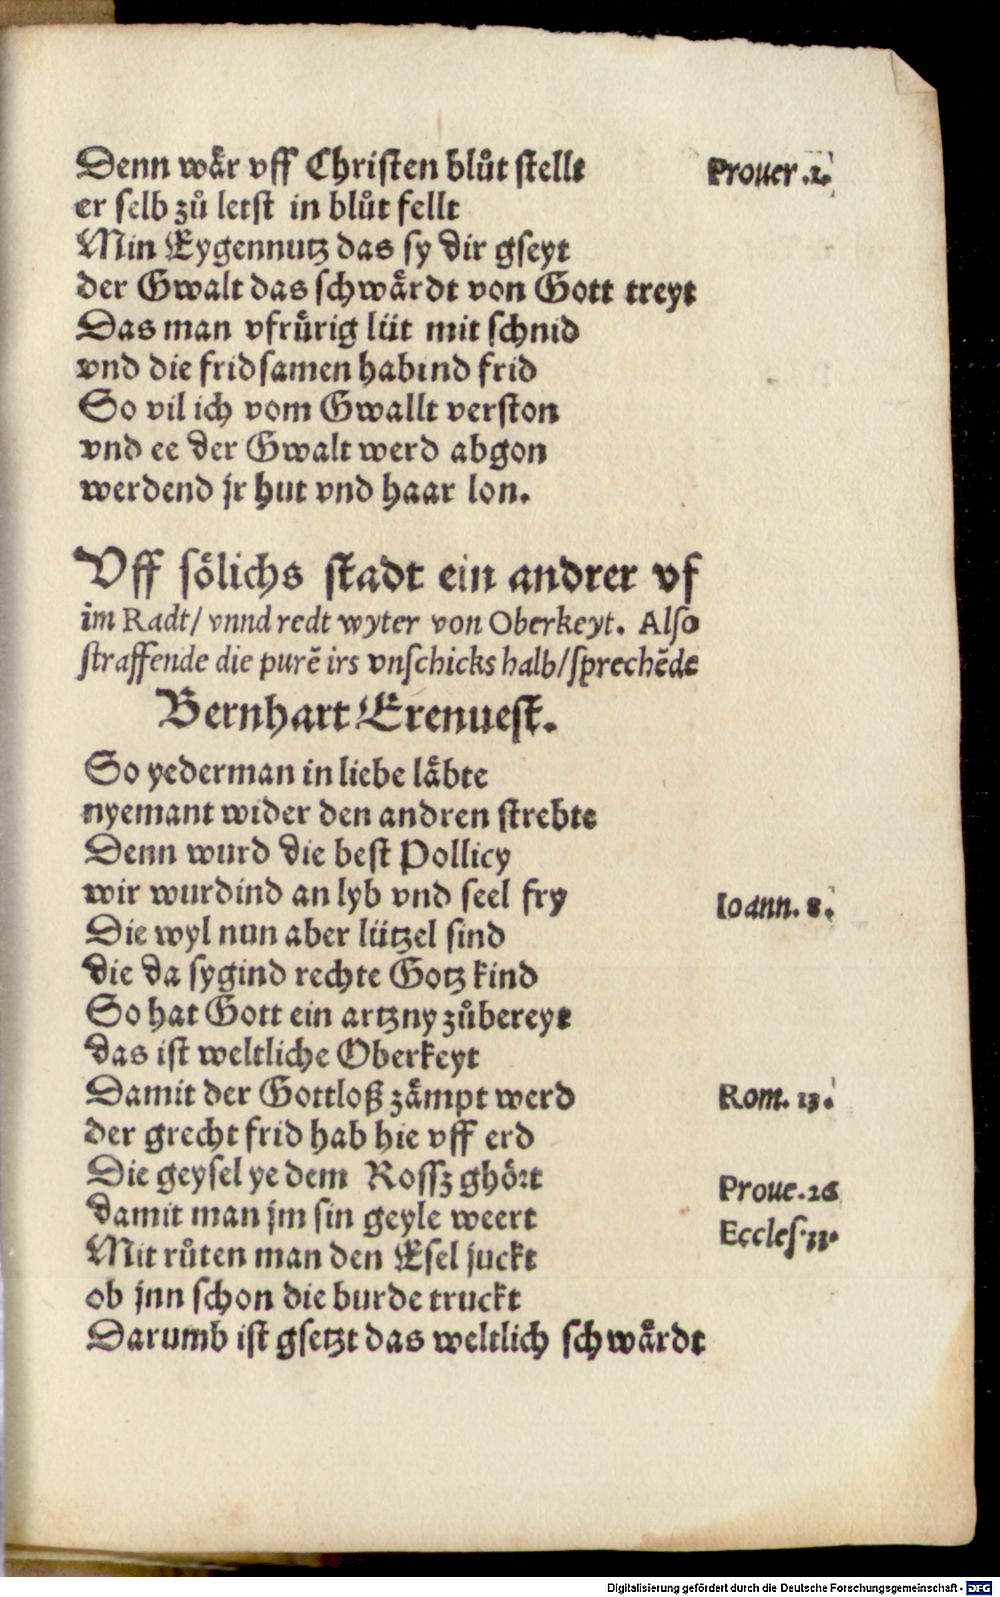 Denn wår vff Christen blůt stellt Prouer .1.
er selb zů letst in blůt fellt
Min Eygennutz das sy dir gseyt
der Gwalt das schwårdt von Gott treyt
Das man vfrůrig lüt mit schnid
vnd die fridsamen habind frid
So vil ich vom Gwallt verston
vnd ee der Gwalt werd abgon
werdend jr hut vnd haar lon.
Vff sölichs stadt ein andrer vf
im Radt/ vnnd redt wyter von Oberkeyt. Also
straffende die purē irs vnschicks halb/sprechēde
Bernhart Erenuest.
So yederman in liebe låbte
nyemant wider den andren strebte
Denn wurd die best Pollicy
wir wurdind an lyb vnd seel fry Ioann. 8.
Die wyl nun aber lützel sind
die da sygind rechte Gotz kind
So hat Gott ein artzny zůbereyt
das ist weltliche Oberkeyt
Damit der Gottloß zåmpt werd Rom. 13.
der grecht frid hab hie vff erd
Die geysel ye dem Rossz ghört Proue. 26
damit man jm sin geyle weert Eccles. 33.
Mit růten man den Esel juckt
ob jnn schon die burde truckt
Darumb ist gsetzt das weltlich schwårdt
Digitalisierung gefördert durch die Deutsche Forschungsgemeinschaft - DFG